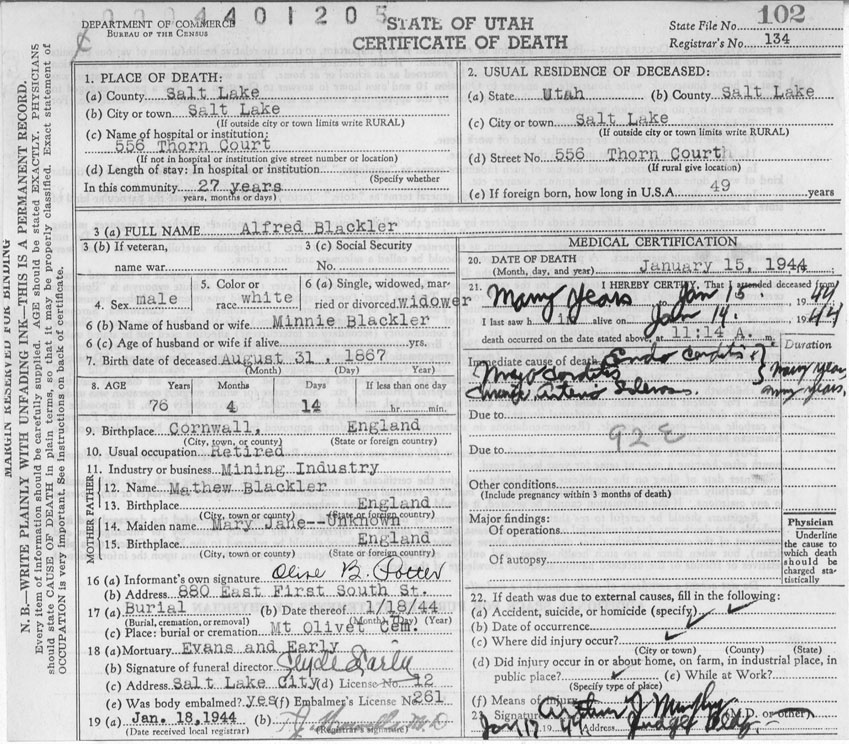 0004401205
DEPARTMENT OF COMMERCE
BUREAU OF THE CENSUS
STATE OF UTAH
CERTIFICATE OF DEATH
State File No. 102
Registrar's No. 134
MARGIN RESERVED FOR BINDING
N. B.—WRITE PLAINLY WITH UNFADING INK—THIS IS A PERMANENT RECORD.
Every item of information should be carefully supplied. AGE should be stated EXACTLY. PHYSICIANS
should state CAUSE OF DEATH in plain terms, so that it may be properly classified. Exact statement of
OCCUPATION is very important. See instructions on back of certificate.
1. PLACE OF DEATH:
(a) County Salt Lake
(b) City or town Salt Lake
(If outside city or town limits write RURAL)
(c) Name of hospital or institution:
556 Thorn Court
(If not in hospital or institution give street number or location)
(d) Length of stay: In hospital or institution
(Specify whether
In this community 27 years
years, months or days)
2. USUAL RESIDENCE OF DECEASED:
(a) State Utah (b) County Salt Lake
(c) City or town Salt Lake
(If outside city or town limits write RURAL)
(d) Street No. 556 Thorn Court
(If rural give location)
(e) If foreign born, how long in U.S.A. 49 years
3 (a) FULL NAME Alfred Blackler
3 (b) If veteran,
name war
3 (c) Social Security
No.
4. Sex male
5. Color or
race white
6 (a) Single, widowed, mar-
ried or divorced widower
6 (b) Name of husband or wife Minnie Blackler
6 (c) Age of husband or wife if alive yrs.
7. Birth date of deceased August 31, 1867
(Month) (Day) (Year)
8. AGE Years Months Days If less than one day
76 4 14 hr. min.
9. Birthplace Cornwall, England
(City, town, or county) (State or foreign country)
10. Usual occupation Retired
11. Industry or business Mining Industry
FATHER
12. Name Mathew Blackler
13. Birthplace England
(City, town, or county) (State or foreign country)
MOTHER
14. Maiden name Mary Jane--Unknown
15. Birthplace England
(City, town or county) (State or foreign country)
16 (a) Informant's own signature Olive B. Potter
(b) Address 880 East First South St.
17 (a) Burial (b) Date thereof 1/18/44
(Burial, cremation, or removal) (Month) (Day) (Year)
(c) Place: burial or cremation Mt Olivet Cem.
18 (a) Mortuary Evans and Early
(b) Signature of funeral director Clyde Early
(c) Address Salt Lake City (d) License No 12
(e) Was body embalmed? yes (f) Embalmer's License No 261
19 (a) Jan. 18, 1944 (b)
(Date received local registrar) (Registrar's signature)
MEDICAL CERTIFICATION
20. DATE OF DEATH
(Month, day, and year) January 15, 1944
21. I HEREBY CERTIFY, That I attended deceased from
Many years to Jan 15. 1944
I last saw h im alive on Jan 14. 1944
death occurred on the date stated above, at 11:14 A. m.
Duration
Immediate cause of death Endo Carditis &
Myo Carditis } many years
Chronic Arterio Sclerosis many years.
Due to
92 E
Due to
Other conditions
(Include pregnancy within 3 months of death)
Major findings:
Of operations
Of autopsy
Physician
Underline
the cause to
which death
should be
charged sta-
tistically
22. If death was due to external causes, fill in the following:
(a) Accident, suicide, or homicide (specify) ✓
(b) Date of occurrence ✓
(c) Where did injury occur? ✓
(City or town) (County) (State)
(d) Did injury occur in or about home, on farm, in industrial place, in
public place? ✓ (e) While at Work?
(Specify type of place)
(f) Means of injury
23 Signature Arthur J. Murphy (M.D. or other)
Jan 17 1944 Address Judge Bldg.